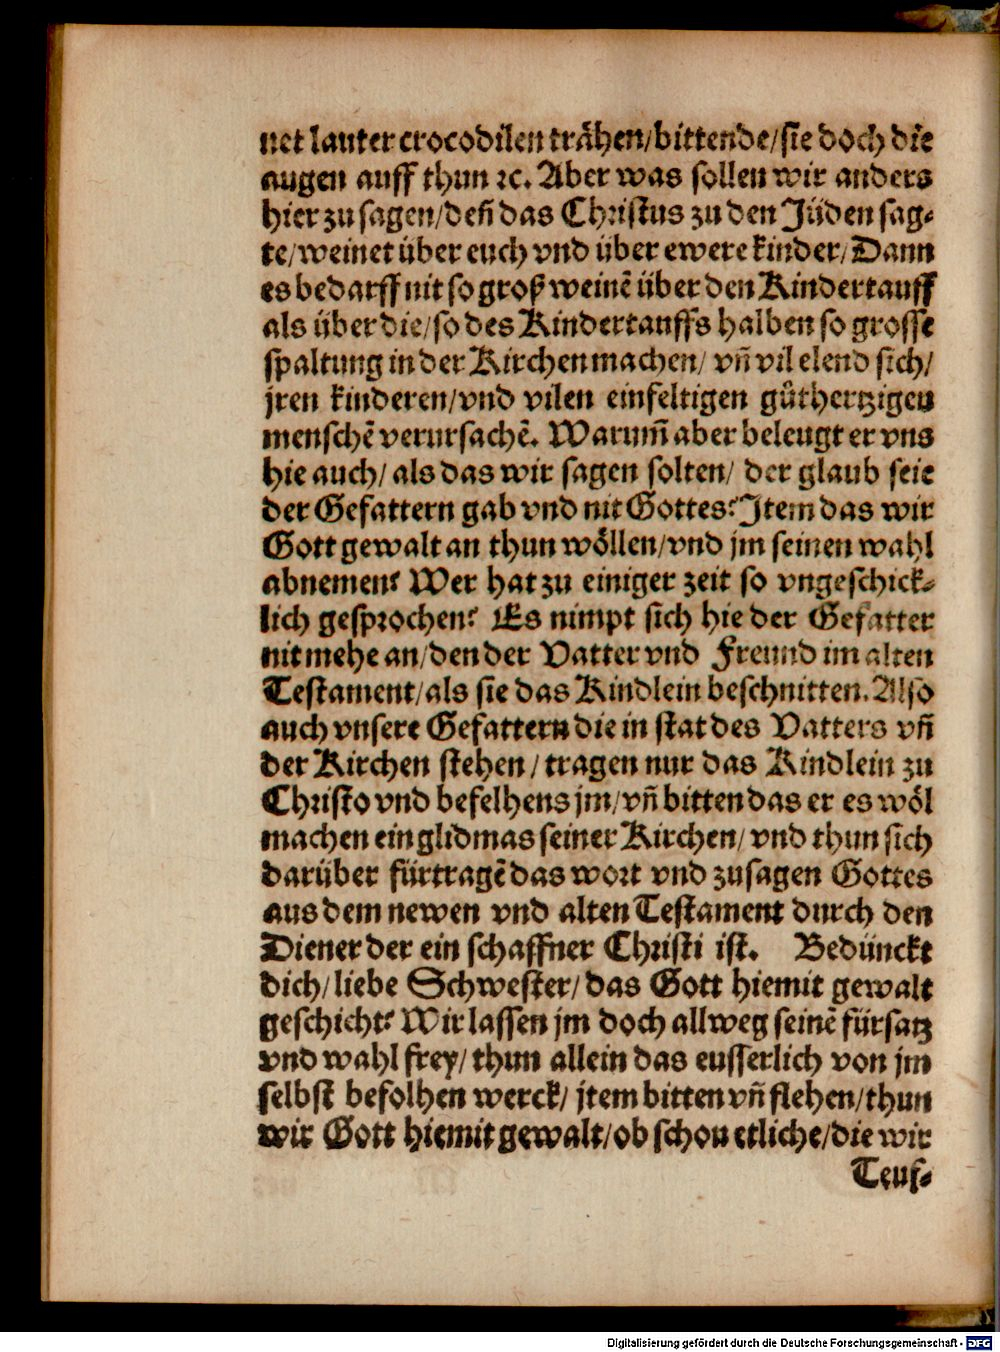 net lauter crocodilen trähen/bittende/sie doch die
augen auff thun ꝛc. Aber was sollen wir anders
hier zu sagen/deñ das Christus zu den Jüden sag⸗
te/weinet über euch vnd über ewere kinder/Dann
es bedarff nit so groß weinē über den Kindertauff
als über die/so des Kindertauffs halben so grosse
spaltung in der Kirchen machen/ vñ vil elend sich/
jren kinderen/vnd vilen einfeltigen gůthertzigen
menschē verursachē. Warum̃ aber beleugt er vns
hie auch/ als das wir sagen solten/ der glaub seie
der Gefattern gab vnd nit Gottes? Item das wir
Gott gewalt an thun wöllen/vnd jm seinen wahl
abnemen? Wer hat zu einiger zeit so vngeschick⸗
lich gesprochen? Es nimpt sich hie der Gefatter
nit mehe an/den der Vatter vnd Freund im alten
Testament/als sie das Kindlein beschnitten. Also
auch vnsere Gefattern die in stat des Vatters vñ
der Kirchen stehen/ tragen nur das Kindlein zu
Christo vnd befelhens jm/vñ bitten das er es wöl
machen ein glidmas seiner Kirchen/ vnd thun sich
darüber fürtragē das wort vnd zusagen Gottes
aus dem newen vnd alten Testament durch den
Diener der ein schaffner Christi ist. Bedünckt
dich/ liebe Schwester/ das Gott hiemit gewalt
geschicht? Wir lassen jm doch allweg seinē fürsatz
vnd wahl frey/ thun allein das eusserlich von jm
selbst befolhen werck/ jtem bitten vñ flehen/thun
wir Gott hiemit gewalt/ob schon etliche/die wir
Teuf⸗
Digitalisierung gefördert durch die Deutsche Forschungsgemeinschaft - DFG